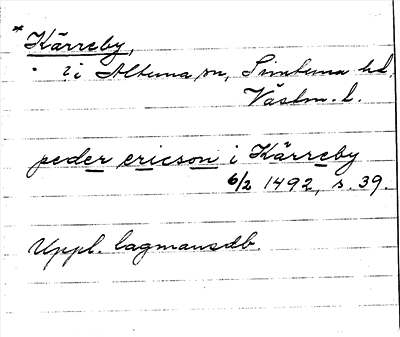 * Kärreby,
? i Altuna sn, Simtuna hd,
Västm. l.
peder ericson i Kärreby
6/2 1492, s. 39.
Uppl. lagmansdb.